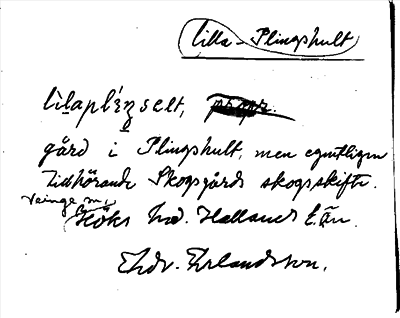 Lilla-Plingshult
lìlaplɛ́ŋselt,
gård i Plingshult, men egentligen
tillhörande Skogsgårds skogsskifte.
Veinge m,
Höks hd. Hallands län.
Edv. Erlandsson.